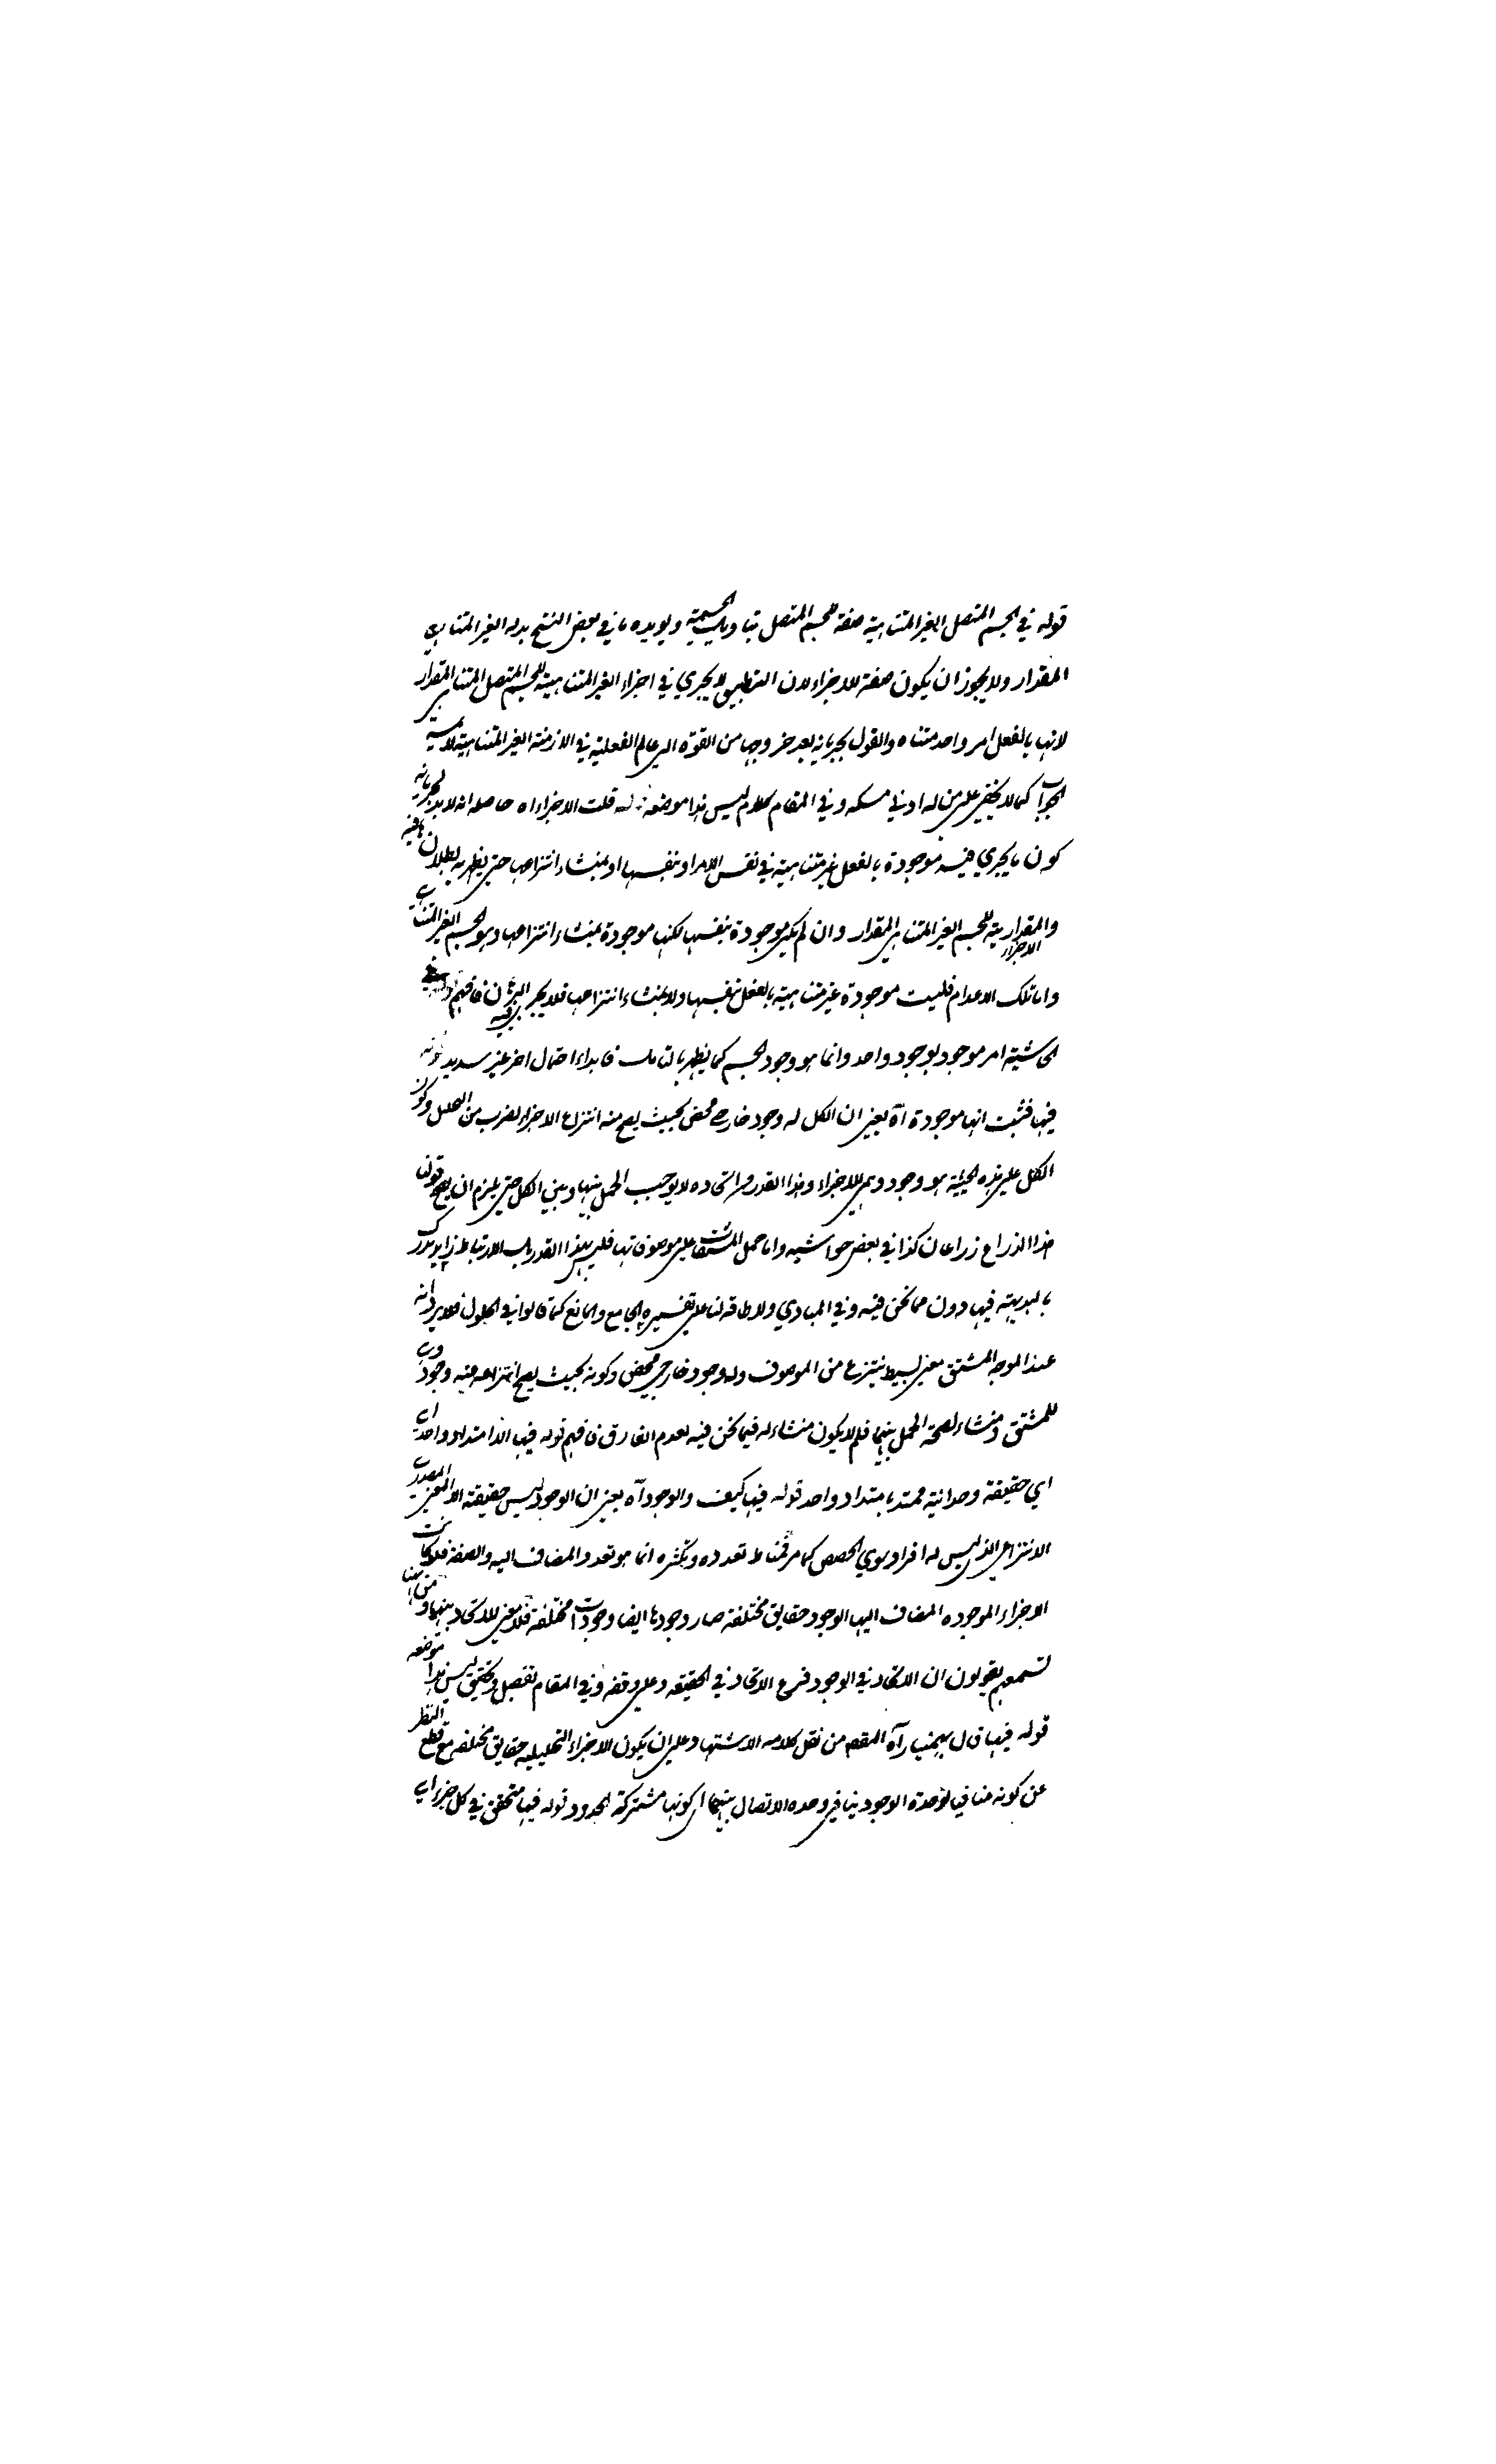 قوله في الجسم المتصل الغير المتناهية صفة للجسم المتصل بتاويل الجسمية ويويده ما في بعض النسخ بدله الغير المتناهي
المقدار ولا يجوز ان يكون صفة للاجزاء لان التطبيق لا يجري في اجزاء الغير المتناهية للجسم المتصل المتناهي المقدار
لانها بالفعل امر واحد متناه والقول بجريانه بعد خروجها من القوة الى عالم الفعلية في الازمنة الغير المتناهية لا
الجواب كما لا يخفى على من له ادنى مسكه وفي المقام كلام ليس هذا موضعه قوله قلت الاجزاء اه حاصله انه لا بد لجريانه
كون ما يجري فيه موجودة بالفعل غير متناهية في نفس الامر او بنفسها او بمنشاء انتزاعها حتى يظهر به بطلان
والاجزاء المقدارية للجسم الغير المتناهي المقدار وان لم يكن موجودة بنفسها لكنها موجودة بمنشاء انتزاعها وهو الجسم الغير المتناهي
واما تلك الاعدام فليست موجودة غير متناهية بالفعل بنفسها ولا بمنشاء انتزاعها فلا يجري البرهان فيه فافهم
الحاشية امر موجود بوجود واحد وانما هو وجود الجسم كما يظهر بالتامل فابداء احتمال اخر غير سديد قوله
فيها فثبت انها موجودة اه يعني ان الكل له وجود خارجي محض بحيث يصح منه انتزاع الاجزاء بضرب من التحليل وكون
الكل على هذه الحيثية هو وجود وهمي للاجزاء وهذا القدر من اتحاده لا يوجب الحمل بينها وبين الكل حتى يلزم ان يصح قولنا
هذا الذراع ذراعان كذا في بعض حواشيه واما حمل المشتقات على موصوفاتها فليس بهذا القدر بل الارتباط زايد يدرك
بالبديهة فيها دون ما نحن فيه وفي المبادي ولا طاقة لنا على تفسيره الجامع والمانع كما قالوا في الحلول فلا يرد انه
عند الموجه المشتق معنى بسيط ينتزع من الموصوف وله وجود خارجي محض وكونه بحيث يصح انتزاعه عنه وجود
للمشتق ومنشاء لصحة الحمل بينهما فلم لا يكون منشاء له فيما نحن فيه لعدم الفارق فافهم قوله فيها الا امتداد واحد اي
اي حقيقة وحدانية ممتد بامتداد واحد قوله فيها كيف والوجود اه يعني ان الوجود ليس حقيقته الا المعنى المصدري
الانتزاعي الذي ليس له افراد سوى الحصص كما مر فمناط تعدده وتكثره انما هو تعدد المضاف اليه والصفة فلما كانت
الاجزاء الموجوده المضاف اليها الوجود حقايق مختلفة صار وجودها ايضا وجودات مختلفة فلا معنى للاتحاد بينها ومن ههنا
تسمعهم يقولون ان الاتحاد في الوجود فرع الاتحاد في الحقيقه وعلى وفقه وفي المقام تفصيل وتحقيق ليس هذا موضعه
قوله فيها قال بهمنيار اه المقصود من نقل كلامه الاستشهاد على ان يكون للاجزاء التحليليه حقايق مختلفه مع قطع النظر
عن كونه منافيا لوحدة الوجود ينافي وحده الاتصال بينهما اي كونها مشتركة الحدود قوله فيها متحقق في كل جزء اي